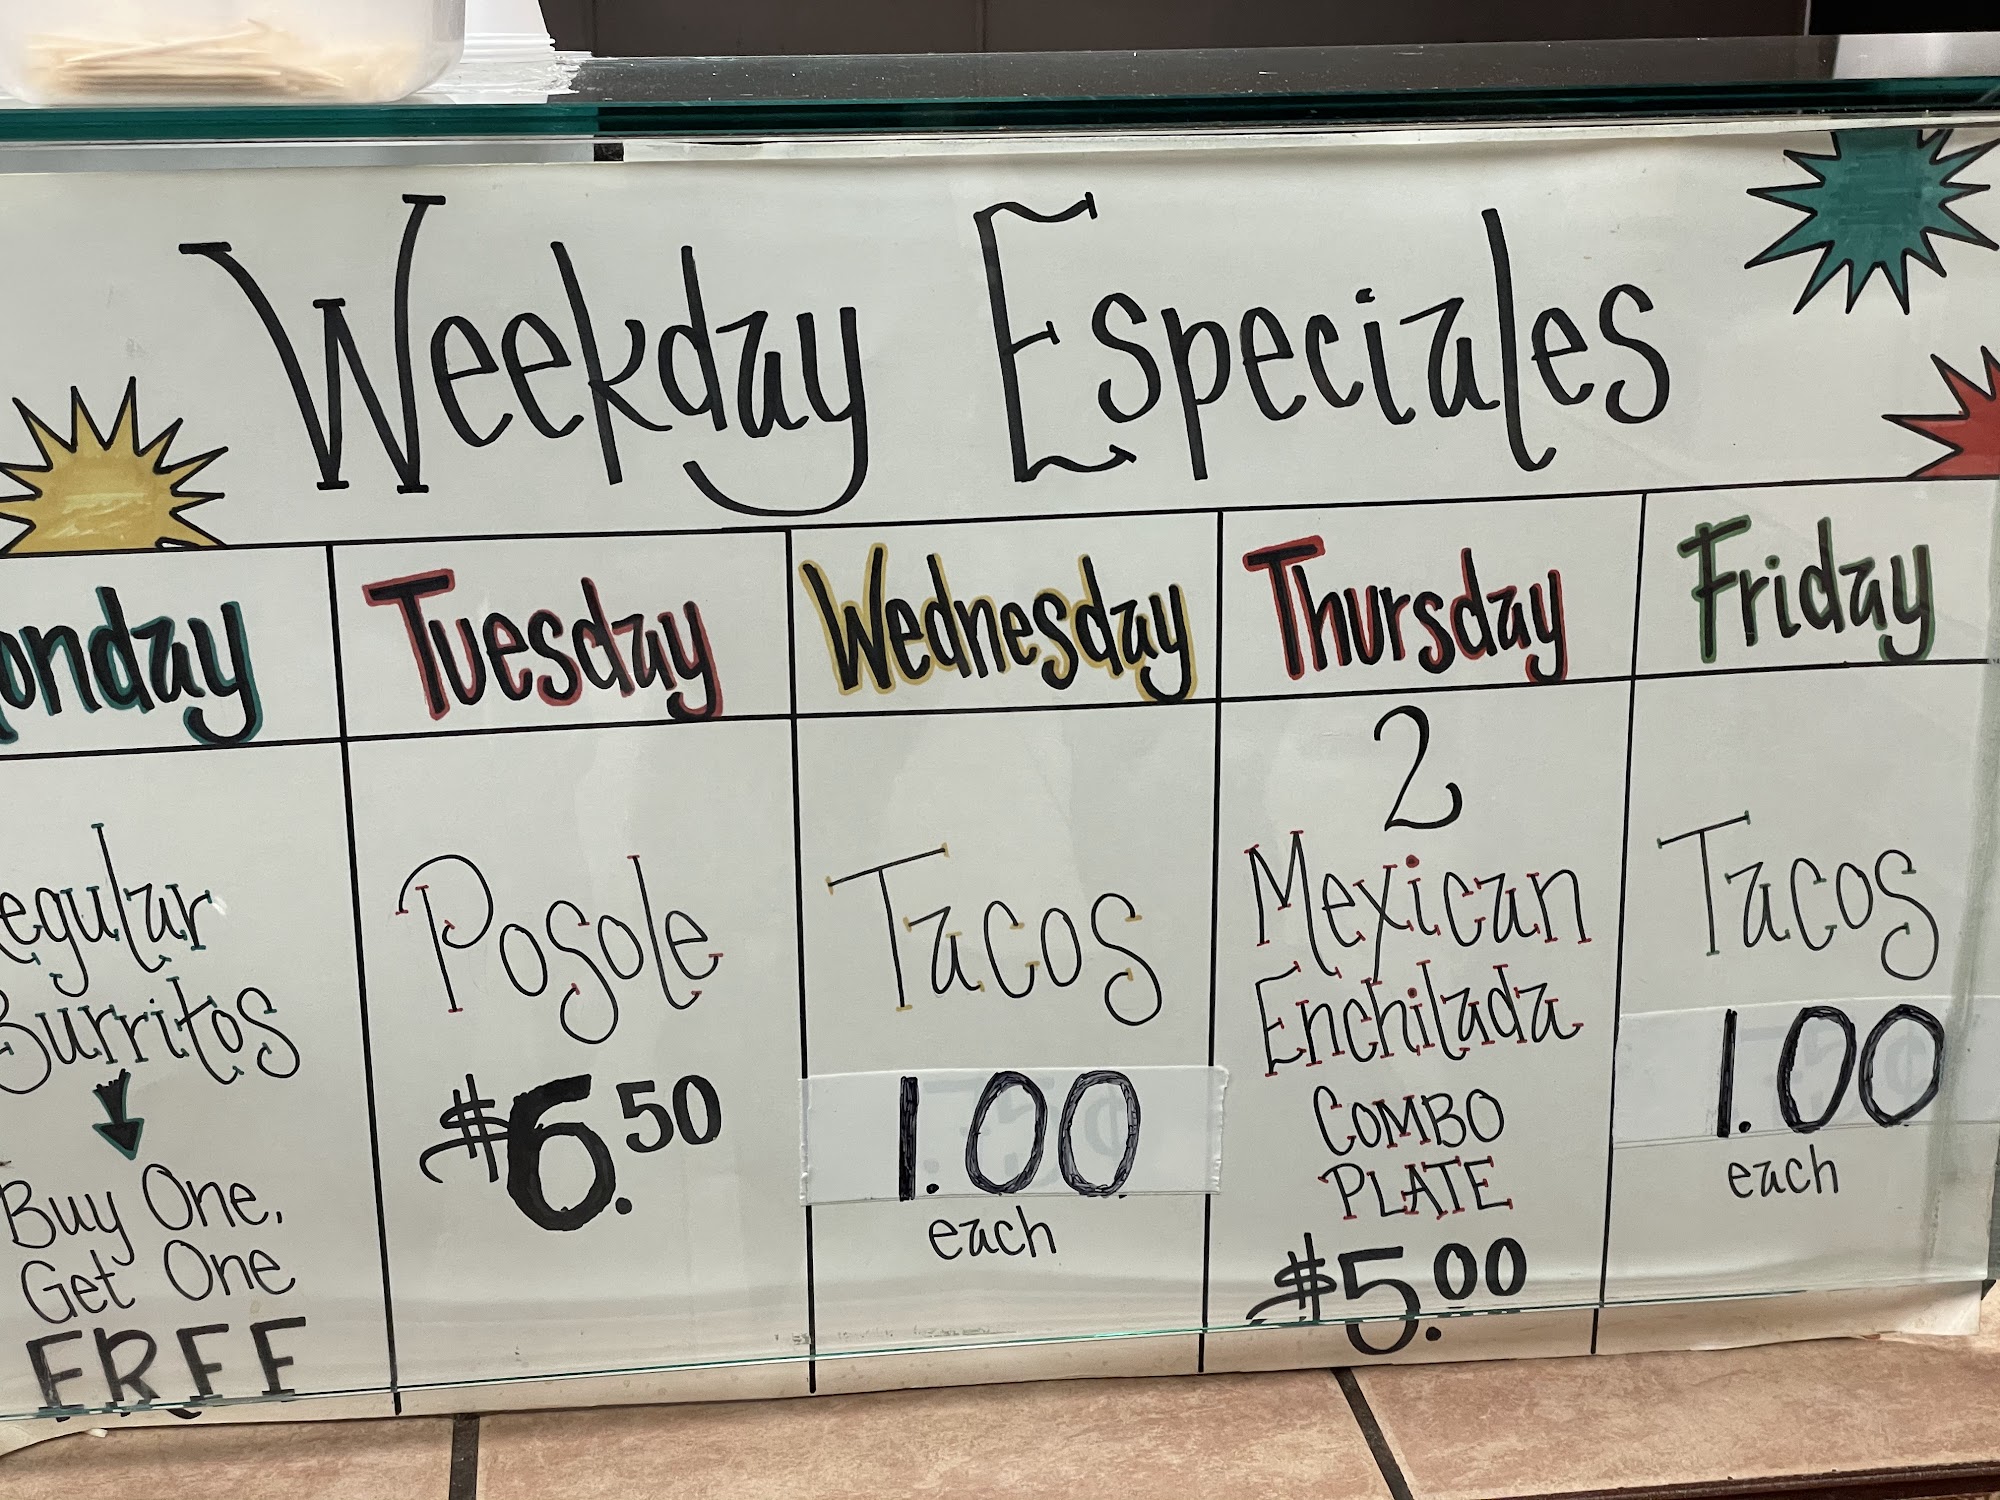 Weekday Especiales
onday
Tuesday
Wednesday
Thursday
Friday
egular
Burritos
Buy One,
Get One
FREE
Posole
$6.50
Tacos
1.00
each
2
Mexican
Enchilada
COMBO
PLATE
$5.00
Tacos
1.00
each